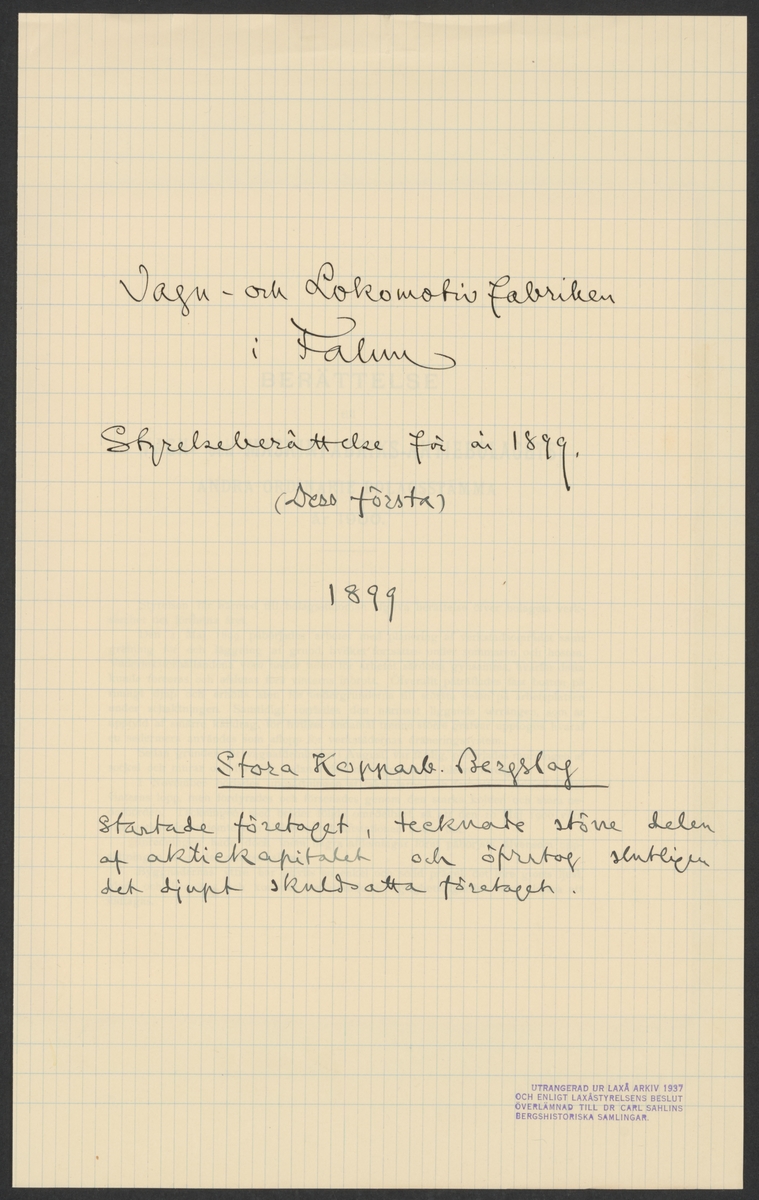 Vagn- och Lokomotivfabriken
i Falun
Styrelseberättelse för år 1899.
(Dess första)
1899
Stora Kopparb. Bergslag
startade företaget, tecknade större delen
af aktiekapitalet och öfvertog slutligen
det djupt skuldsatta företaget.
UTRANGERAD UR LAXÅ ARKIV 1937
OCH ENLIGT LAXÅSTYRELSENS BESLUT
ÖVERLÄMNAD TILL DR CARL SAHLINS
BERGSHISTORISKA SAMLINGAR.